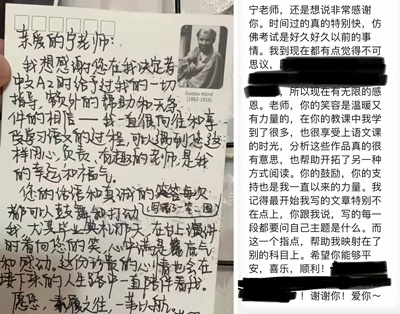 亲爱的宁老师：
我想感谢您在我决定考
中文A2时给予过我的一切
指导，额外的帮助和无条
件的相信——我一直很向往和享
受学习语文的过程，可以遇到您这
样用心，负责，有趣的老师是我
的幸运和福气。
您的话语和真诚的笑容每次
都可以鼓舞和打动（写错了一笔，囧）
我，尤其毕业典礼那天，在台上演讲
时看向您的笑，心中满是底气
和感动。这份珍贵的心情也会在
接下来的人生路中一直陪伴着我。
愿您，素履之往，一苇以航
Gustav Klimt
(1862-1918)
宁老师，还是想说非常感谢
你。时间过的真的特别快，仿
佛考试是好久好久以前的事
情。我到现在都有点觉得不可
思议，
，所以现在有无限的感
恩。老师，你的笑容是温暖又
有力量的，在你的教课中我学
到了很多，也很享受上语文课
的时光，分析这些作品真的很
有意思，也帮助开拓了另一种
方式阅读。你的鼓励，你的支
持也是我一直以来的力量。我
记得最开始我写的文章特别不
在点上，你跟我说，写的每一
段都要问自己主题是什么。而
这一个指点，帮助我映射在了
别的科目上。希望你能够平
安，喜乐，顺利！
！谢谢你！爱你～